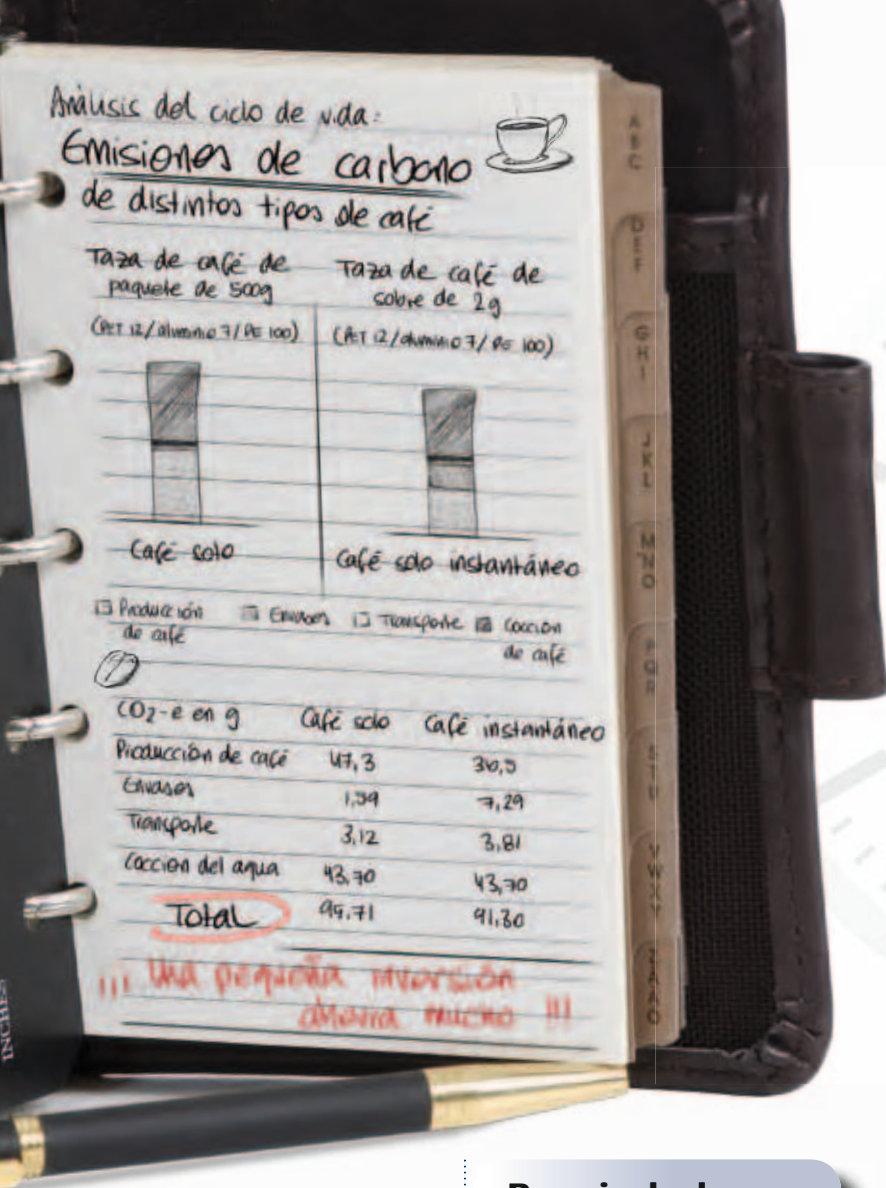 Análisis del ciclo de vida:
Emisiones de carbono
de distintos tipos de café
Taza de café de
paquete de 500g
Taza de café de
sobre de 2g
(PET 12/aluminio 7/PE 100)
(PET 12/aluminio 7/PE 100)
Café solo
Café solo instantáneo
Producción de café
Envases
Transporte
Cocción de café
CO2-e en g Café solo Café instantáneo
Producción de café 47,3 36,5
Envases 1,59 7,29
Transporte 3,12 3,81
Cocción del agua 43,70 43,70
Total 95,71 91,30
¡¡¡ Una pequeña inversión
ahorra mucho !!!
ABC
DEF
GHI
JKL
MNO
PQR
STU
VWXY
INCHES